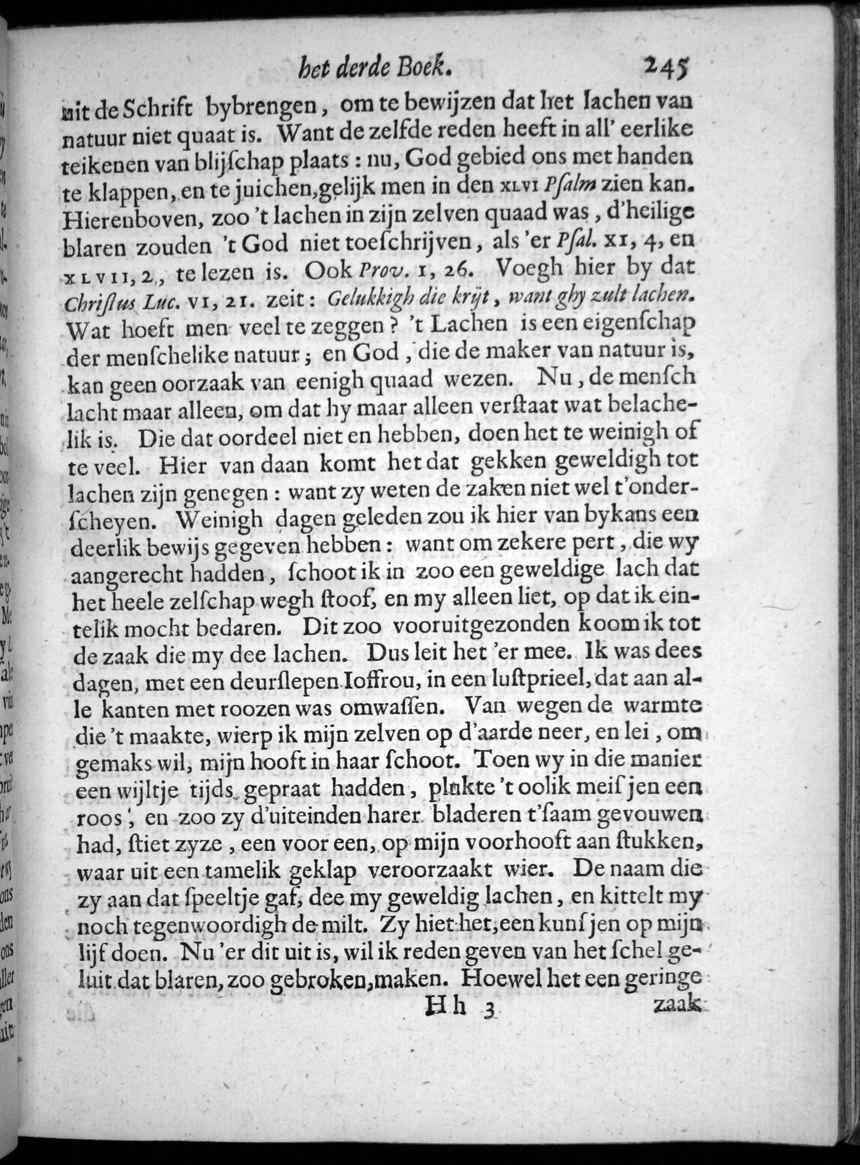 het derde Boek. 245
uit de Schrift bybrengen, om te bewijzen dat het lachen van
natuur niet quaat is. Want de zelfde reden heeft in all' eerlike
teikenen van blijſchap plaats : nu, God gebied ons met handen
te klappen, en te juichen, gelijk men in den XLVI Pſalm zien kan.
Hierenboven, zoo 't lachen in zijn zelven quaad was, d'heilige
blaren zouden 't God niet toeſchrijven, als 'er Pſal. XI, 4, en
XLVII, 2, te lezen is. Ook Prov. I, 26. Voegh hier by dat
Chriſtus Luc. VI, 21. zeit : Gelukkigh die krijt, want ghy zult lachen.
Wat hoeft men veel te zeggen ? 't Lachen is een eigenſchap
der menſchelike natuur; en God, die de maker van natuur is,
kan geen oorzaak van eenigh quaad wezen. Nu, de menſch
lacht maar alleen, om dat hy maar alleen verſtaat wat belache-
lik is. Die dat oordeel niet en hebben, doen het te weinigh of
te veel. Hier van daan komt het dat gekken geweldigh tot
lachen zijn genegen : want zy weten de zaken niet wel t'onder-
ſcheyen. Weinigh dagen geleden zou ik hier van bykans een
deerlik bewijs gegeven hebben : want om zekere pert, die wy
aangerecht hadden, ſchoot ik in zoo een geweldige lach dat
het heele zelſchap wegh ſtoof, en my alleen liet, op dat ik ein-
telik mocht bedaren. Dit zoo vooruitgezonden koom ik tot
de zaak die my dee lachen. Dus leit het 'er mee. Ik was dees
dagen, met een deurſlepen Ioffrou, in een luſtprieel, dat aan al-
le kanten met roozen was omwaſſen. Van wegen de warmte
die 't maakte, wierp ik mijn zelven op d'aarde neer, en lei, om
gemaks wil, mijn hooft in haar ſchoot. Toen wy in die manier
een wijltje tijds gepraat hadden, plukte 't oolik meiſjen een
roos, en zoo zy d'uiteinden harer bladeren t'ſaam gevouwen
had, ſtiet zyze, een voor een, op mijn voorhooft aan ſtukken,
waar uit een tamelik geklap veroorzaakt wier. De naam die
zy aan dat ſpeeltje gaf, dee my geweldig lachen, en kittelt my
noch tegenwoordigh de milt. Zy hiet het, een kunſjen op mijn
lijf doen. Nu 'er dit uit is, wil ik reden geven van het ſchel ge-
luit dat blaren, zoo gebroken, maken. Hoewel het een geringe
H h 3 zaak